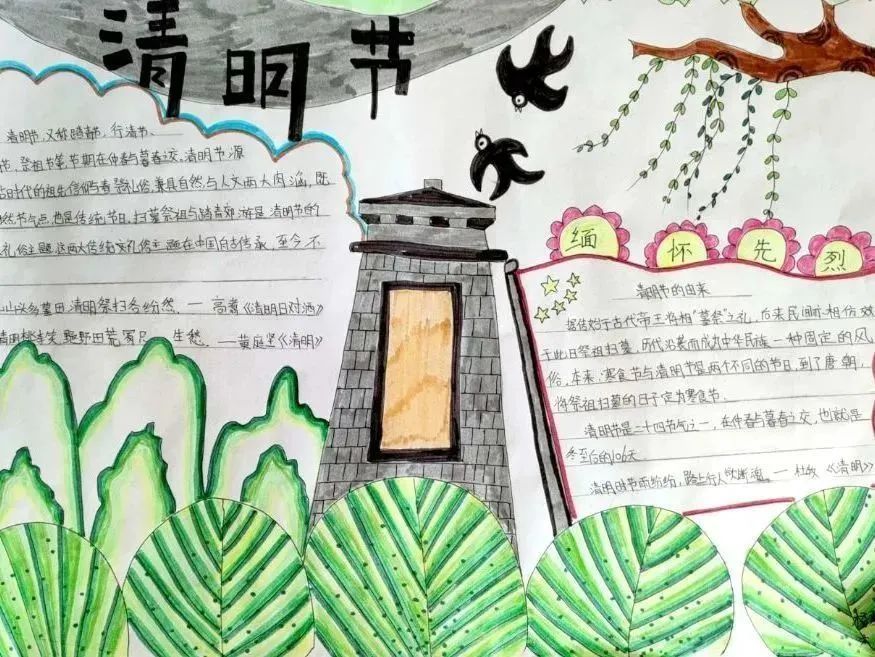 清明节
清明节,又称踏青节,行清节、
节,祭祖节等,节期在仲春与暮春之交,清明节源
时代的祖先信仰与春祭礼俗,兼具自然与人文两大内涵,既
然节气点,也是传统节日,扫墓祭祖与踏青郊游是清明节的
礼俗主题,这两大传统文礼俗主题在中国自古传承,至今不
山头多墓田,清明祭扫各纷然.— 高翥《清明日对酒》
桃李笑,野田荒冢只 生愁. —黄庭坚《清明》
缅怀先烈
清明节的由来
据传始于古代帝王将相"墓祭"之礼,后来民间相仿效
于此日祭祖扫墓,历代沿袭而成为中华民族一种固定的风
俗,本来,寒食节与清明节是两个不同的节日,到了唐朝,
将祭祖扫墓的日子定为寒食节.
清明节是二十四节气之一,在仲春与暮春之交,也就是
冬至后的106天
清明时节雨纷纷,路上行人欲断魂.— 杜牧《清明》